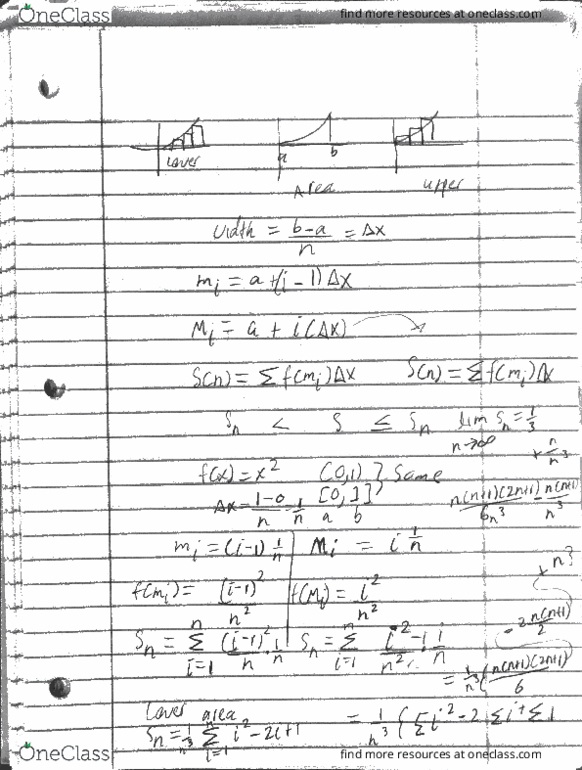 OneClass find more resources at oneclass.com
a b
Lower Area upper
width = b-a/n = Δx
m_i = a + (i-1) Δx
M_i = a + i(Δx)
S(n) = Σ f(m_i) Δx S(n) = Σ f(m_i) Δx
S_n < S ≤ S_n lim n→∞ S_n = 1/3
+ n/n^3
f(x) = x^2 (0,1) } Same
Δx = 1-0/n = 1/n [0,1] n(n+1)(2n+1)/6n^3 - n(n+1)/n^3
a b
m_i = (i-1) 1/n M_i = i 1/n
+ n?
f(m_i) = (i-1)^2/n^2 f(M_i) = i^2/n^2
- 2 n(n+1)/2
S_n = Σ i=1 n (i-1)^2/n · 1/n S_n = Σ i=1 n i^2/n^2 · 1/n
= 1/n^3 ( n(n+1)(2n+1)/6
Lower area
S_n = 1/n^3 Σ i=1 n i^2 - 2i + 1 = 1/n^3 ( Σ i^2 - 2 Σ i + Σ 1
OneClass find more resources at oneclass.com